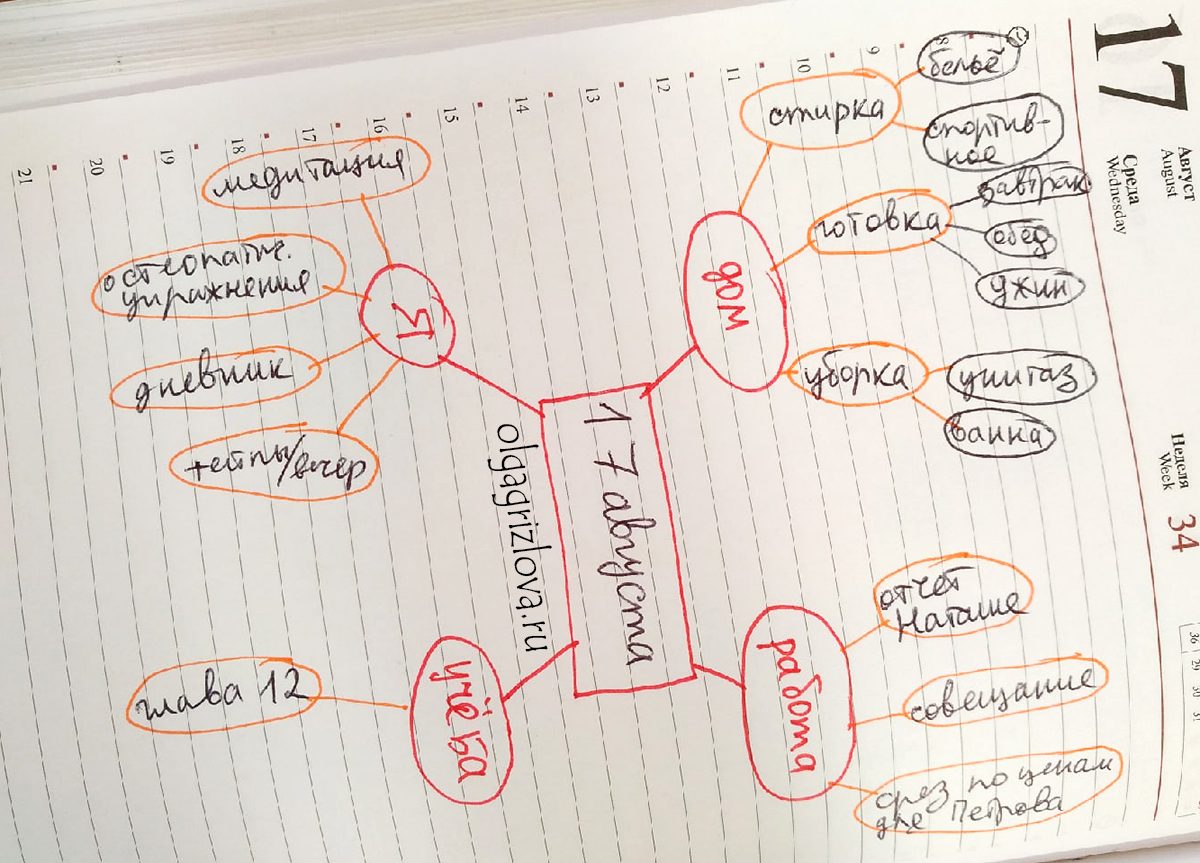 17
Август
August
Среда
Wednesday
Неделя
Week
34
8
9
10
11
12
13
14
15
16
17
18
19
20
21
17 августа
olgagrizlova.ru
дом
стирка
бельё
спортив-
ное
готовка
завтрак
обед
ужин
уборка
унитаз
ванна
работа
отчет
Наташе
совещание
срез по ценам
для Петрова
учёба
глава 12
Я
медитация
остеопатич.
упражнения
дневник
тейпы/вечер
36 29 30 31